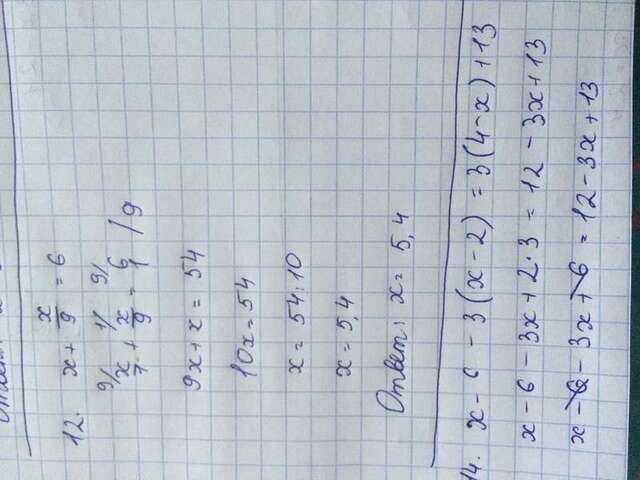 12. x + x/9 = 6
9/ x/7 + 1/ x/9 = 9/ 6/1 / 9
9x + x = 54
10x = 54
x = 54:10
x = 5,4
Ответ: x = 5,4
14. x - 6 - 3(x - 2) = 3(4 - x) + 13
x - 6 - 3x + 2·3 = 12 - 3x + 13
x - 6 - 3x + 6 = 12 - 3x + 13